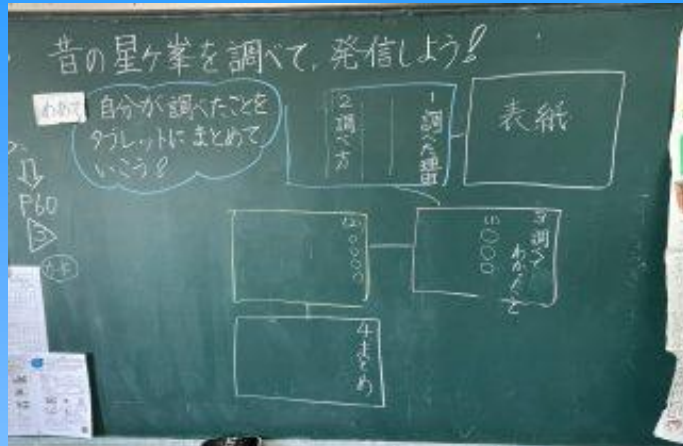 昔の星ケ峯を調べて、発信しよう!
めあて
自分が調べたことを
タブレットにまとめて
いこう!
P60
3
表紙
1 調べた理由
2 調べ方
3 調べて
わかったこと
(1)○○○
(2)○○○○
4 まとめ